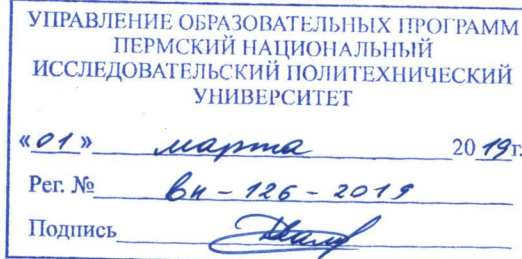 УПРАВЛЕНИЕ ОБРАЗОВАТЕЛЬНЫХ ПРОГРАММ
ПЕРМСКИЙ НАЦИОНАЛЬНЫЙ
ИССЛЕДОВАТЕЛЬСКИЙ ПОЛИТЕХНИЧЕСКИЙ
УНИВЕРСИТЕТ
«01» марта 2019г.
Рег. № вн - 126 - 2019
Подпись